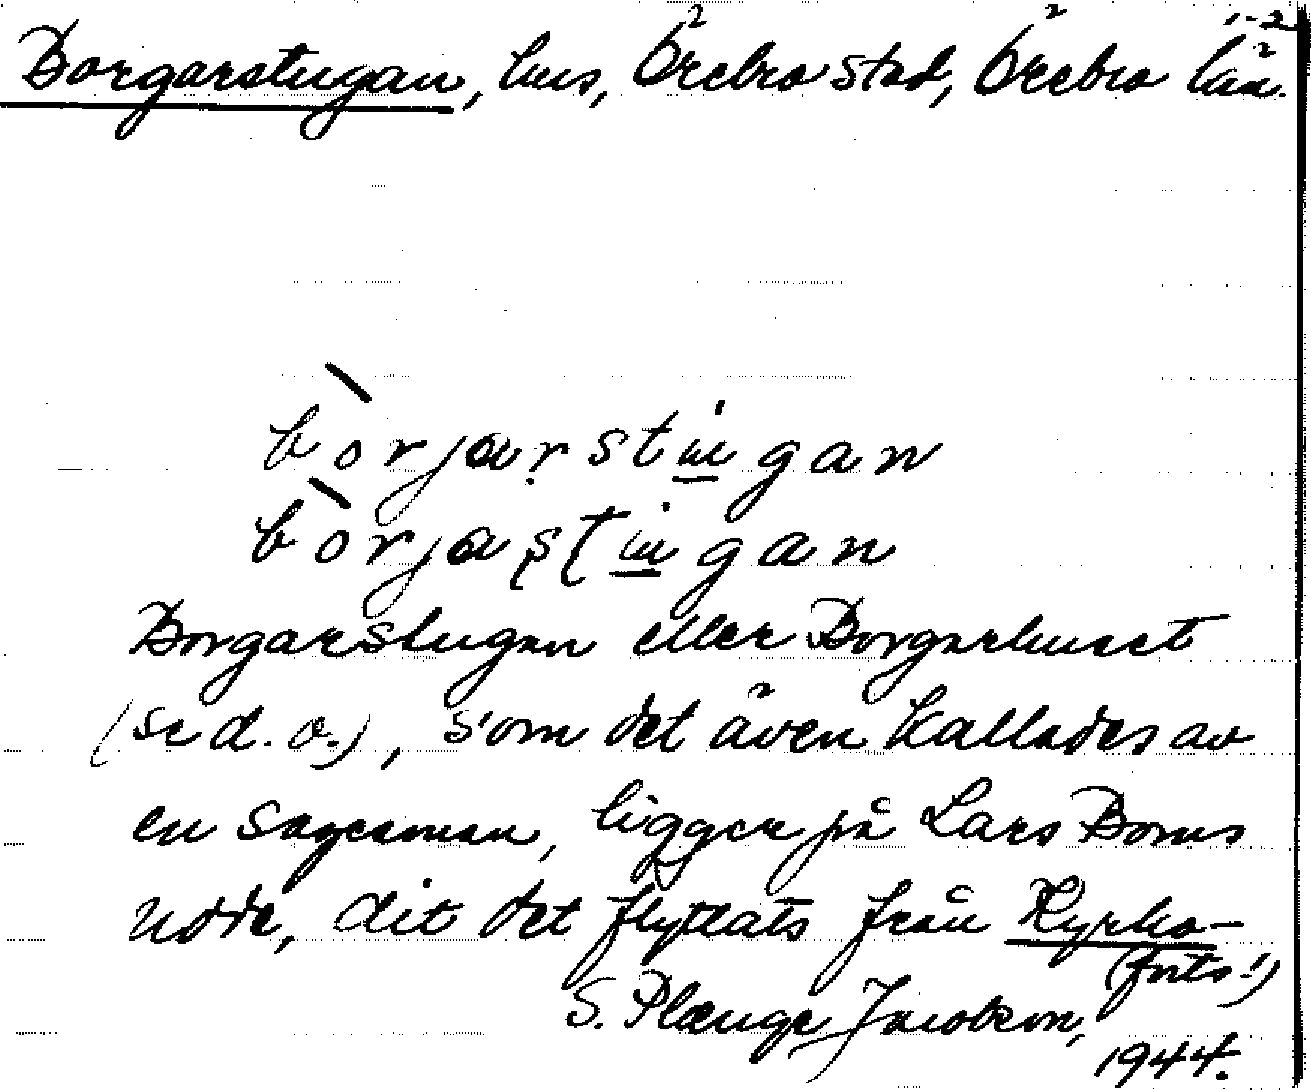 1-2
Borgarstugan, hus, Örebro stad, Örebro län.
bòrjarstugan
bòrjaʂʈugan
Borgarstugan eller Borgarhuset
(se d. o.), som det även kallades av
en sagesman, ligger på Lars Borns
udde, dit det flyttats från Kyrko-
(forts!)
S. Plænge Jacobson,
1944.